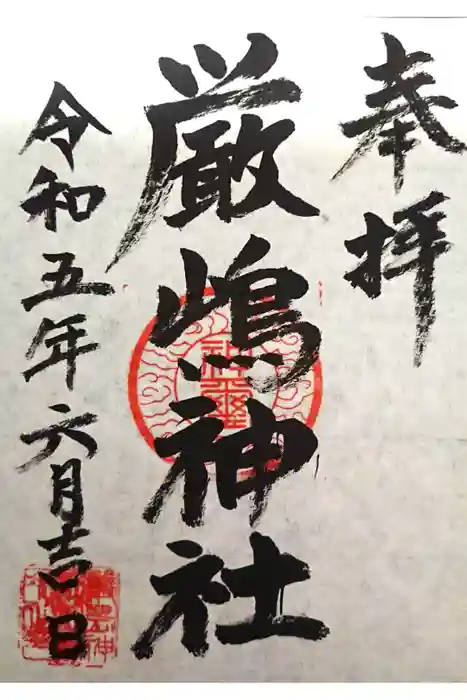 奉拝
厳嶋神社
令和五年六月吉日